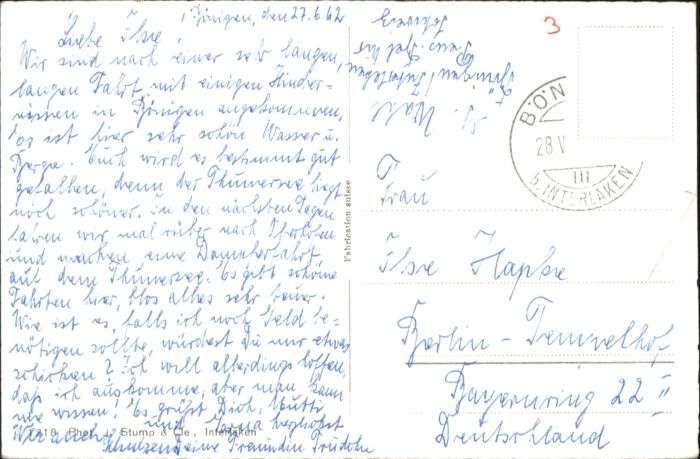 Bönigen, den 27.6.62
Liebe Ilse,
Wir sind nach einer sehr langen,
langen Fahrt mit einigen Hinder-
nissen in Bönigen angekommen.
Es ist hier sehr schön Wasser u.
Berge. Euch wird es bestimmt gut
gefallen, denn der Thunersee liegt
noch schöner. In den nächsten Tagen
fahren wir mal rüber nach
und machen eine Dampferfahrt
auf dem Thunersee. Es gibt schöne
Fahrten hier, blos alles sehr teuer.
Wie ist es, falls ich noch Geld be-
nötigen sollte, würdest Du mir etwas
schicken? Ich will allerdings hoffen,
daß ich auskomme, aber man kann
nie wissen! Es grüßt Dich, Mutti
und herzlichst
Deine Freundin
7218 Phot. J. Stump & Cie., Interlaken
Fabrication suisse
3
BÖN
28 V
III
b. INTERLAKEN
Frau
Ilse Hapke
Berlin-Tempelhof
Bayernring 22 II
Deutschland